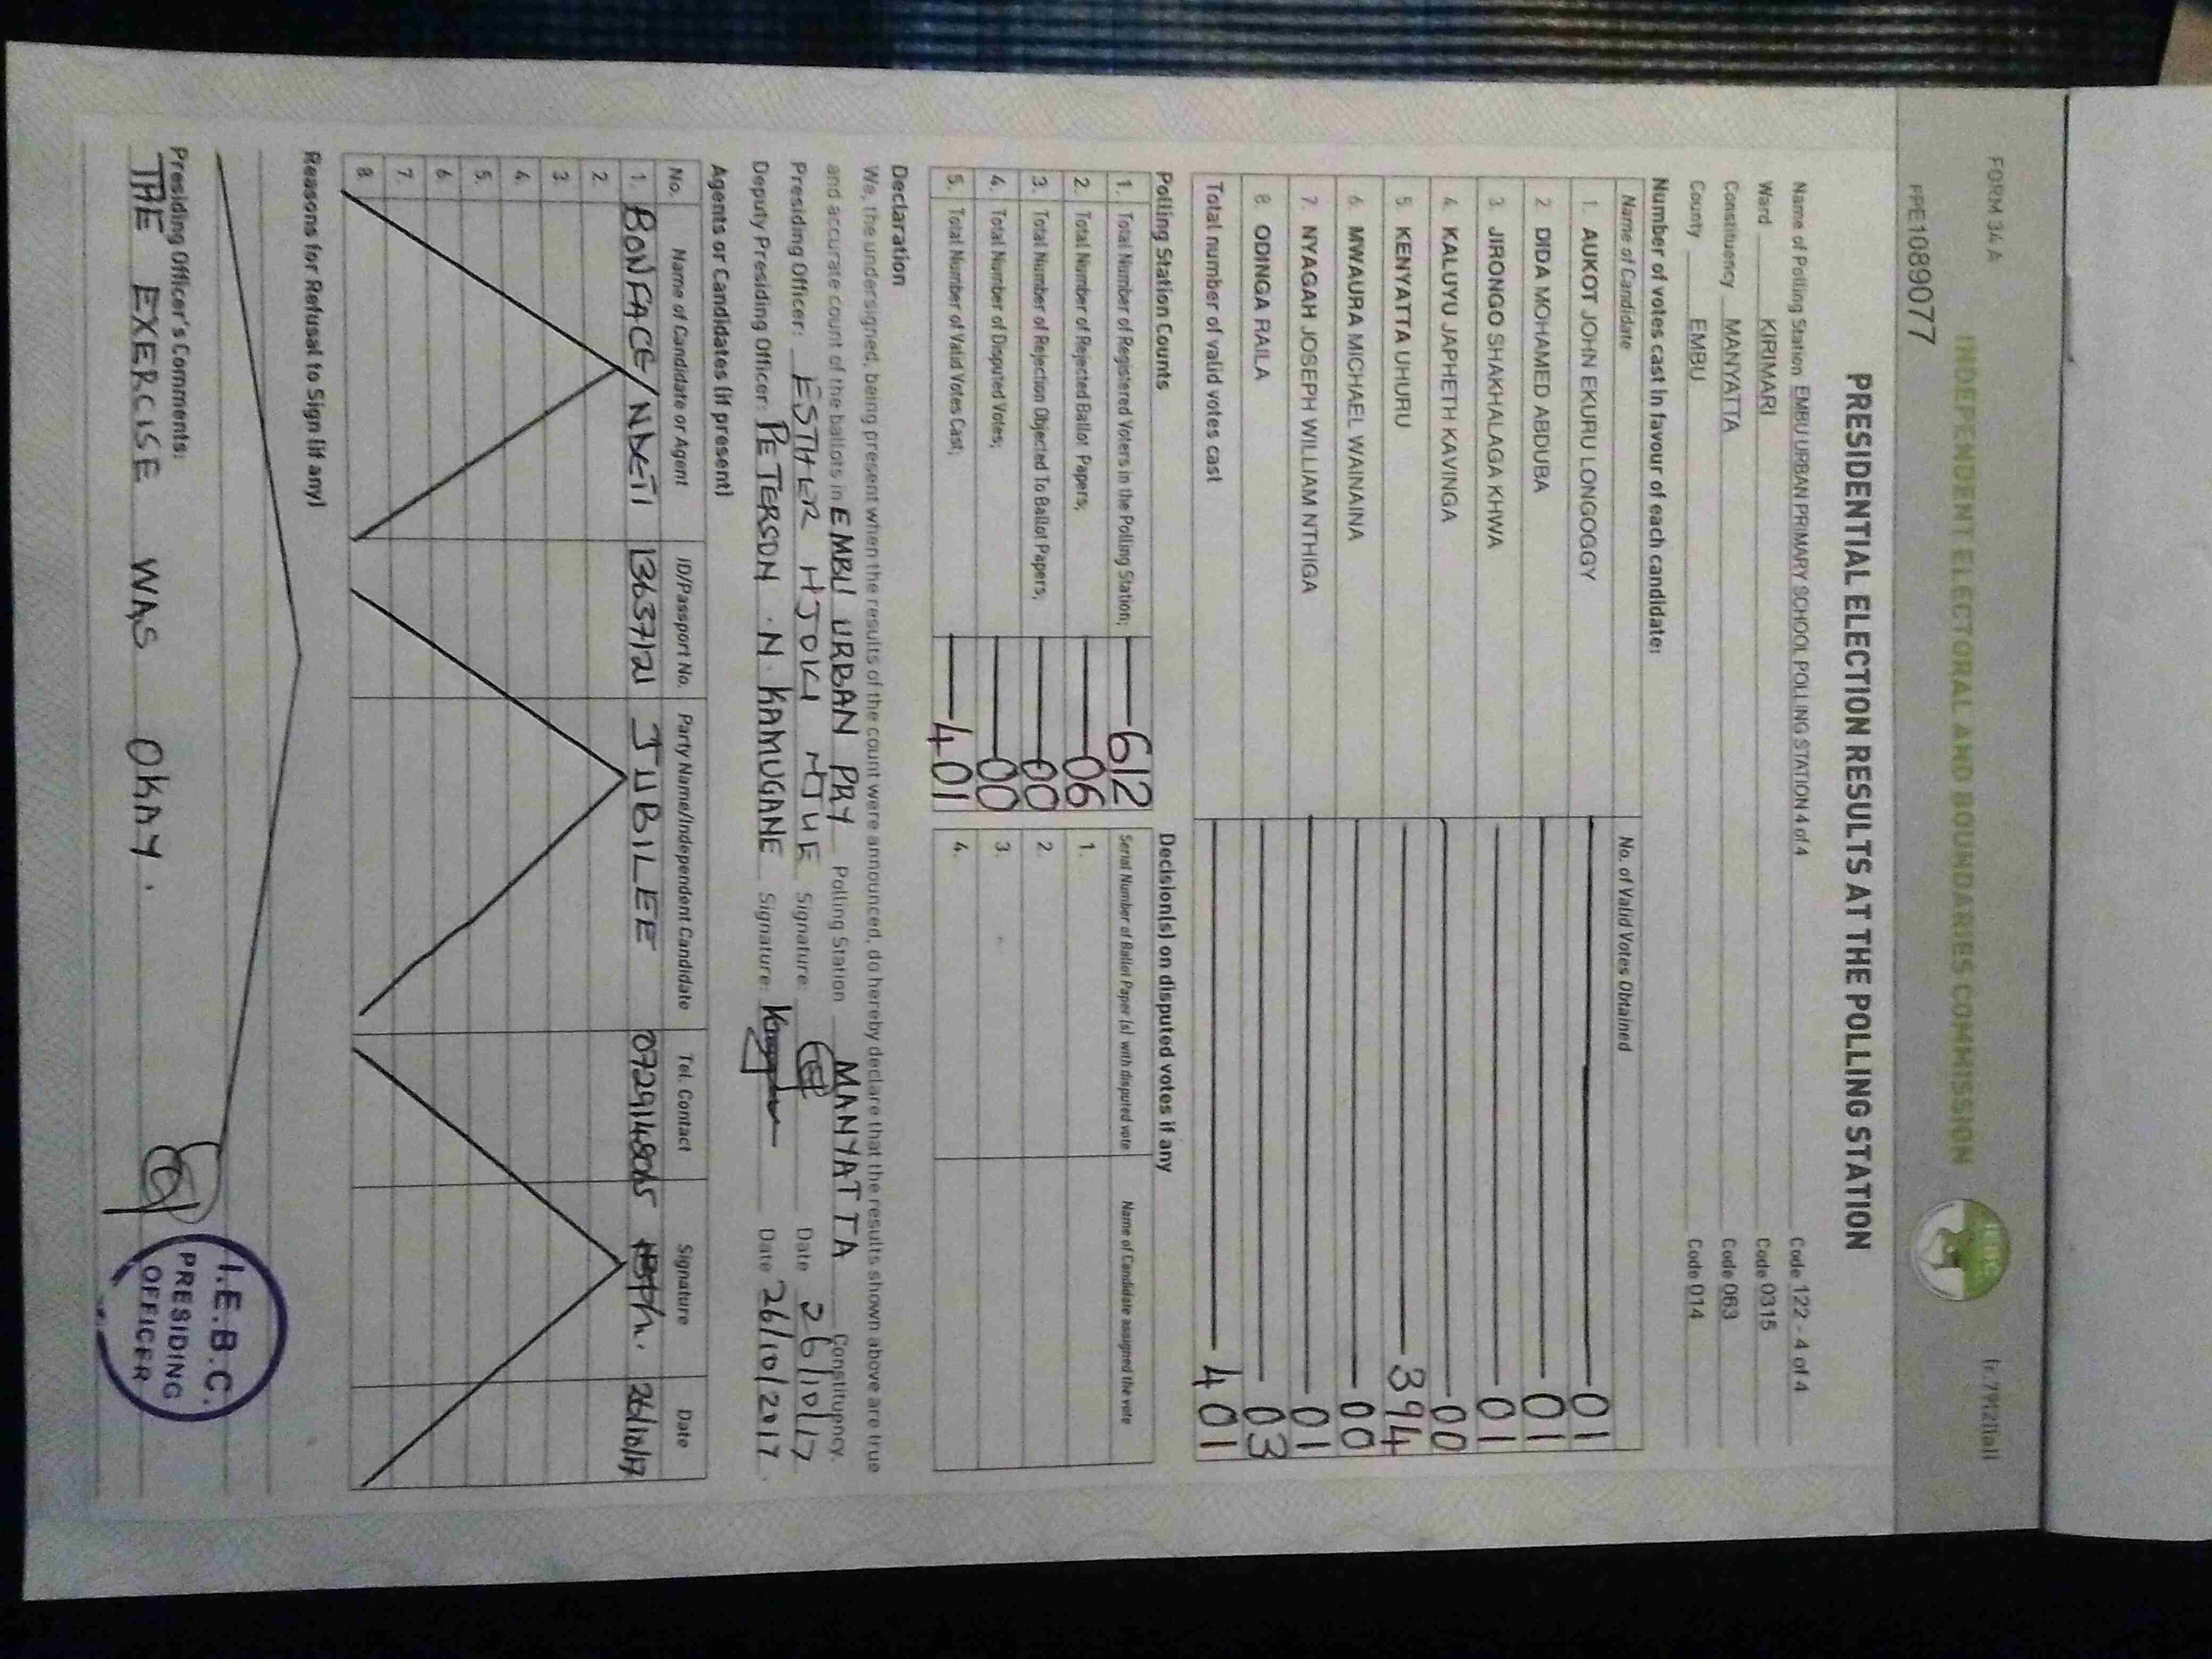 FORM 34A
(r.79(2)(a))
INDEPENDENT ELECTORAL AND BOUNDARIES COMMISSION
PPE1089077
PRESIDENTIAL ELECTION RESULTS AT THE POLLING STATION
Name of Polling Station EMBU URBAN PRIMARY SCHOOL POLLING STATION 4 of 4 Code 122 - 4 of 4
Ward KIRIMARI Code 0315
Constituency MANYATTA Code 063
County EMBU Code 014
Number of votes cast in favour of each candidate:
Name of Candidate No. of Valid Votes Obtained
1. AUKOT JOHN EKURU LONGOGGY 01
2. DIDA MOHAMED ABDUBA 01
3. JIRONGO SHAKHALAGA KHWA 01
4. KALUYU JAPHETH KAVINGA 00
5. KENYATTA UHURU 394
6. MWAURA MICHAEL WAINAINA 00
7. NYAGAH JOSEPH WILLIAM NTHIGA 01
8. ODINGA RAILA 03
Total number of valid votes cast 401
Polling Station Counts
1. Total Number of Registered Voters in the Polling Station; 612
2. Total Number of Rejected Ballot Papers; 06
3. Total Number of Rejection Objected To Ballot Papers; 00
4. Total Number of Disputed Votes; 00
5. Total Number of Valid Votes Cast; 401
Decision(s) on disputed votes if any
Serial Number of Ballot Paper (s) with disputed vote Name of Candidate assigned the vote
1.
2.
3.
4.
Declaration
We, the undersigned, being present when the results of the count were announced, do hereby declare that the results shown above are true
and accurate count of the ballots in EMBU URBAN PRY Polling Station MANYATTA Constituency.
Presiding Officer: ESTHER NJOKI NJUE Signature: Date 26/10/17
Deputy Presiding Officer: PETERSON .N. KAMUGANE Signature: Date 26/10/2017
Agents or Candidates (if present)
No. Name of Candidate or Agent ID/Passport No. Party Name/Independent Candidate Tel. Contact Signature Date
1. BONFACE NDETI 13637121 JUBILEE 26/10/17
2.
3.
4.
5.
6.
7.
8.
Reasons for Refusal to Sign (if any)
Presiding Officer's Comments:
THE EXERCISE WAS OKAY.
I.E.B.C.
PRESIDING
OFFICER